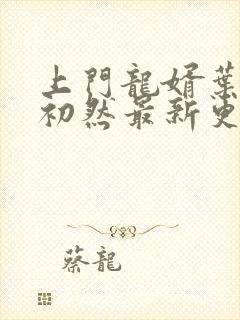 上門龍婿葉
初然最新更
蔡龍